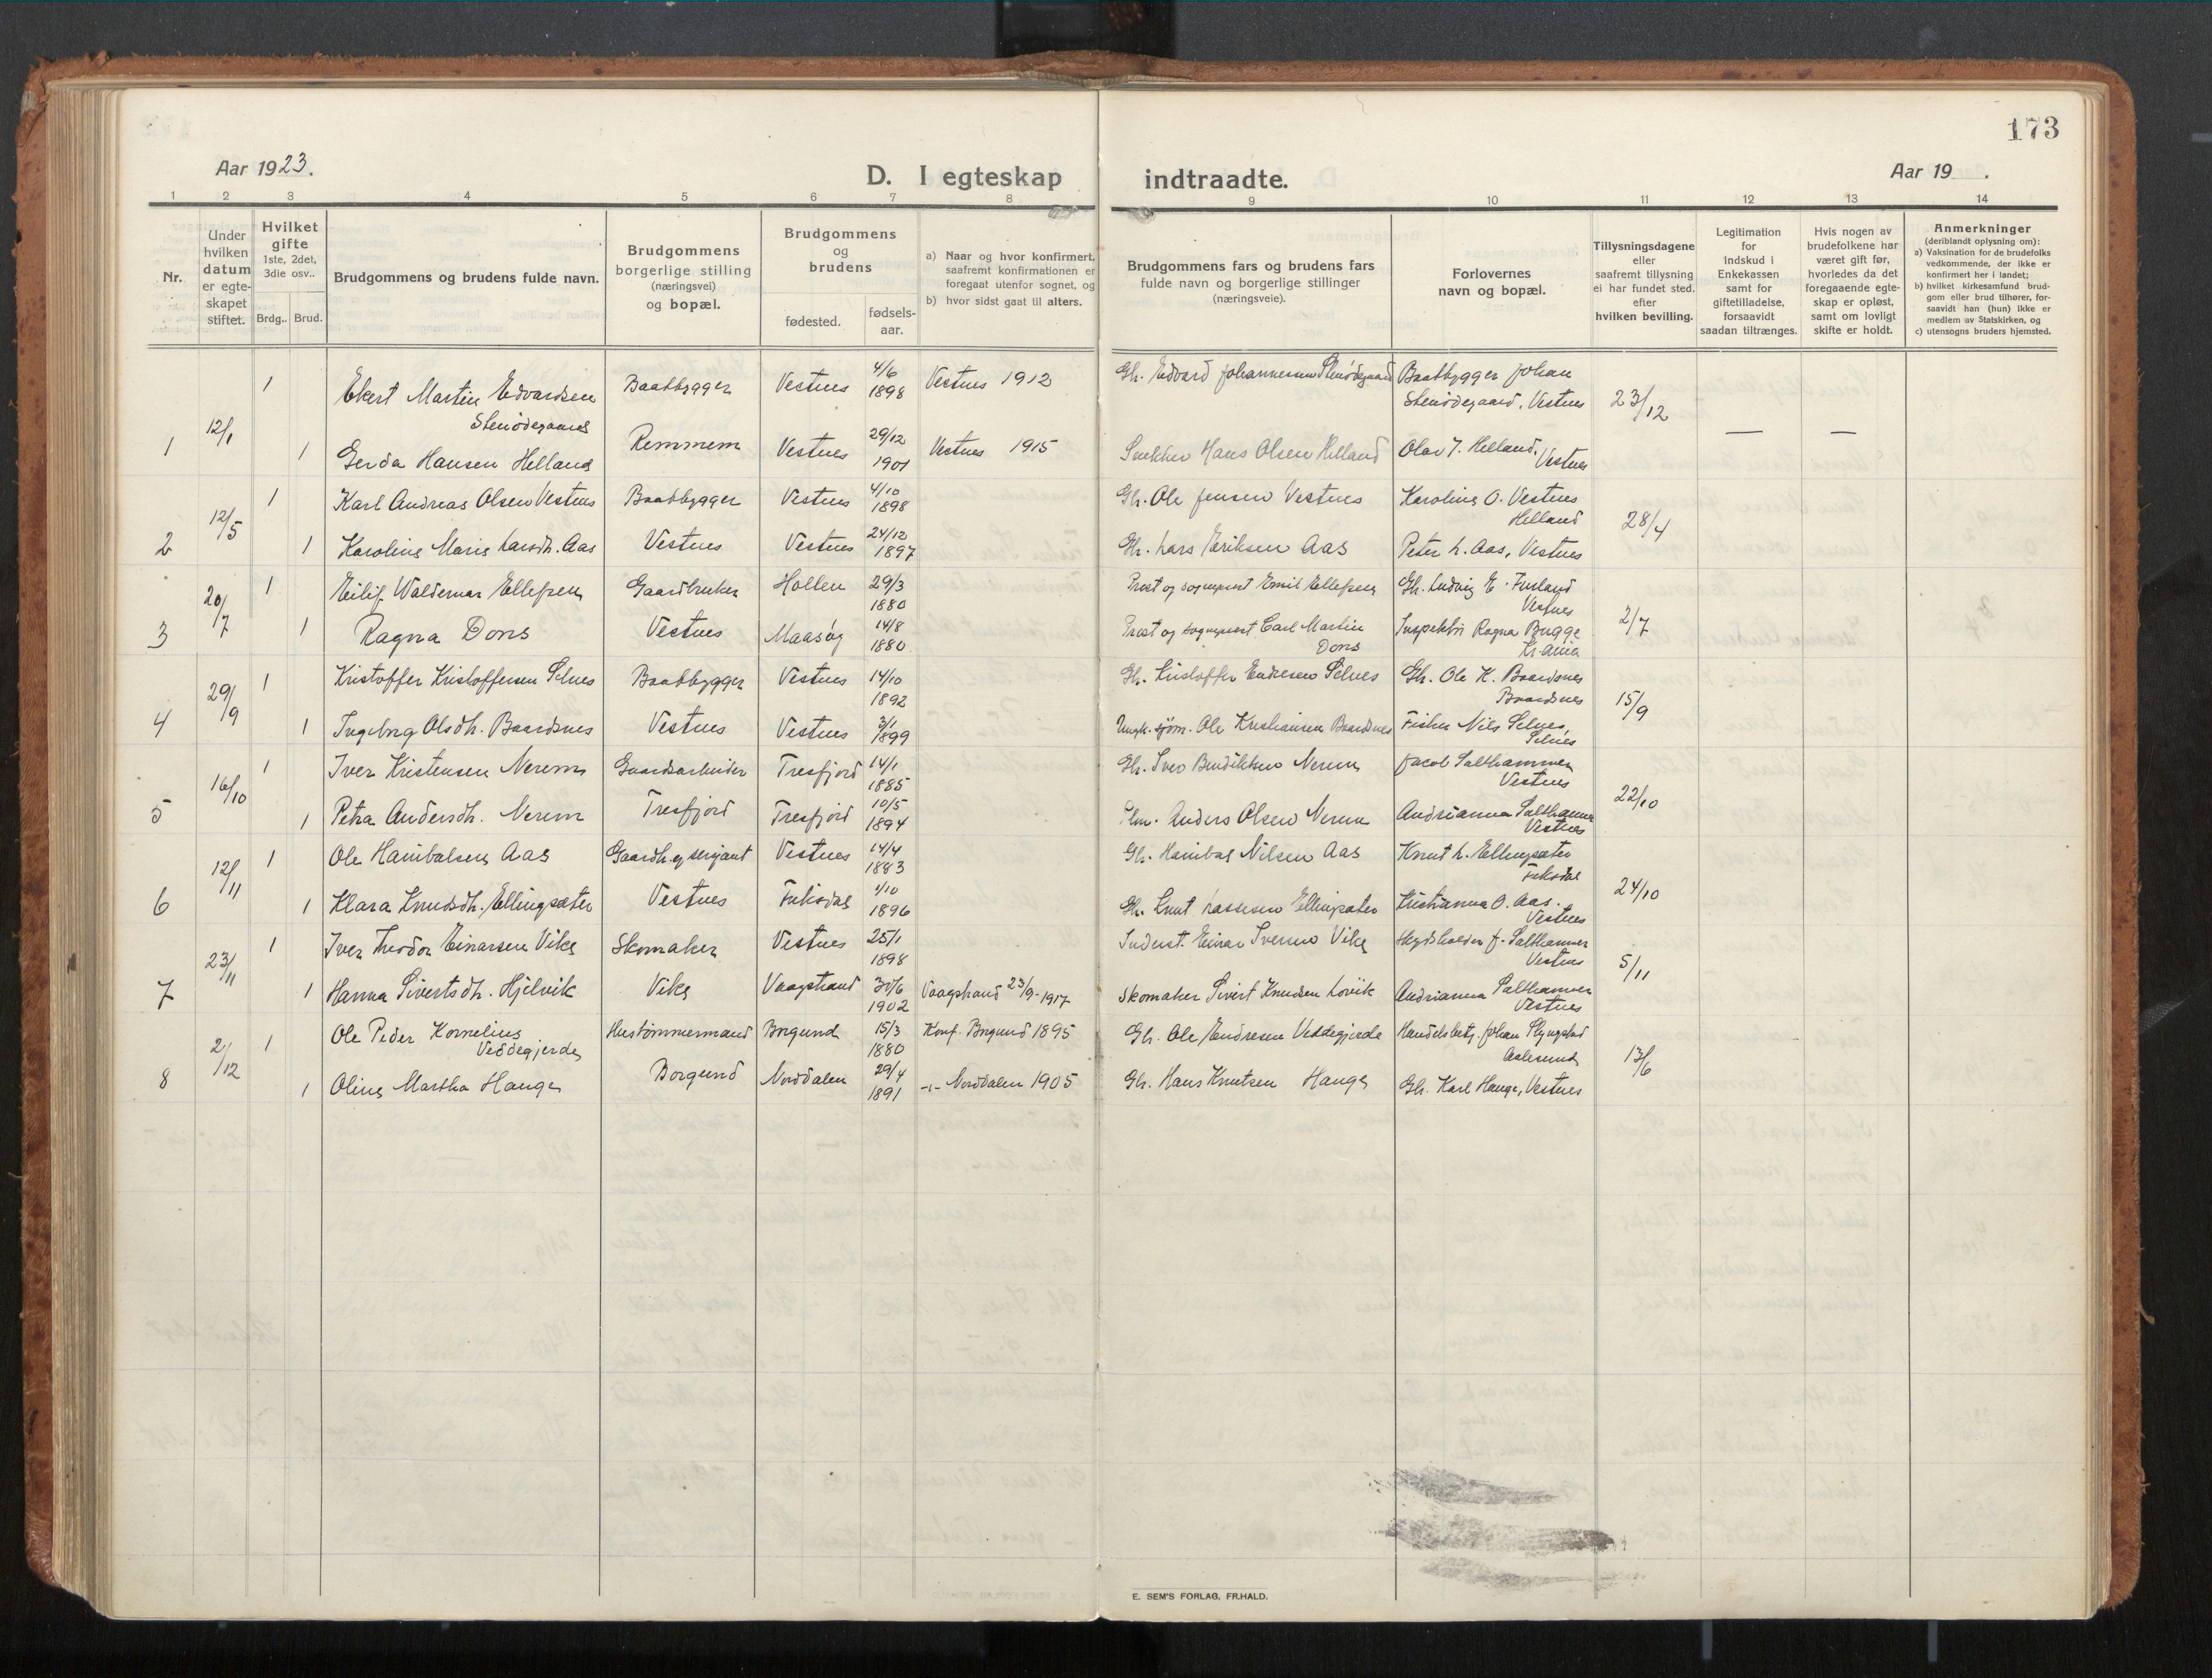 173
Aar 1923.
D. I egteskap indtraadte.
Aar 19 .
1 2 3 4 5 6 7 8 9 10 11 12 13 14
Nr.
Under
hvilken
datum
er egte-
skapet
stiftet.
Hvilket
gifte
1ste, 2det,
3die osv..
Brdg.. Brud.
Brudgommens og brudens fulde navn.
Brudgommens
borgerlige stilling
(næringsvei)
og bopæl.
Brudgommens
og
brudens
fødested.
fødsels-
aar.
a) Naar og hvor konfirmert,
saafremt konfirmationen er
foregaat utenfor sognet, og
b) hvor sidst gaat til alters.
Brudgommens fars og brudens fars
fulde navn og borgerlige stillinger
(næringsveie).
Forlovernes
navn og bopæl.
Tillysningsdagene
eller
saafremt tillysning
ei har fundet sted,
efter
hvilken bevilling.
Legitimation
for
Indskud i
Enkekassen
samt for
giftetilladelse,
forsaavidt
saadan tiltrænges.
Hvis nogen av
brudefolkene har
været gift før,
hvorledes da det
foregaaende egte-
skap er opløst,
samt om lovligt
skifte er holdt.
Anmerkninger
(deriblandt oplysning om):
a) Vaksination for de brudefolks
vedkommende, der ikke er
konfirmert her i landet;
b) hvilket kirkesamfund brud-
gom eller brud tilhører, for-
saavidt han (hun) ikke er
medlem av Statskirken, og
c) utensogns bruders hjemsted.
1 12/1
1 Ekert Martin Edvardsen Baatbygger Vestnes 4/6 1898 Vestnes 1912 Gb. Edvard Johannessen Stenødegaard Baatbygger Johan
Stenødegaard
Stenødegaard, Vestnes 23/12
1 Gerda Hansen Helland Remmem Vestnes 29/12 1901 Vestnes 1915 Snekker Hans Olsen Helland Olav J. Helland, Vestnes — —
2 12/5
1 Karl Andreas Olsen Vestnes Baatbygger Vestnes 4/10 1898 Gb. Ole Jensen Vestnes Karoline O. Vestnes
Helland 28/4
1 Karoline Marie Larsdh. Aas Vestnes Vestnes 24/12 1897 Gb. Lars Eriksen Aas Peter L. Aas, Vestnes
3 20/7
1 Eilif Waldemar Ellefsen Gaardbruker Hollen 29/3 1880 Prost og sogneprest Emil Ellefsen Gb. Ludvig E. Furland
Vestnes 2/7
1 Ragna Dons Vestnes Maasøy 14/8 1880 Prost og sogneprest Carl Martin
Dons
Inspektør Ragna Bugge
Kr.ania
4 29/9
1 Kristoffer Kristoffersen Selnes Baatbygger Vestnes 14/10 1892 Gb. Kristoffer Endresen Selnes Gb. Ole K. Baardsnes
Baardsnes 15/9
1 Ingeborg Olsdh. Baardsnes Vestnes Vestnes 3/1 1899 Ole Kristiansen Baardsnes Fisker Nils Selnes,
Selnes
5 16/10
1 Iver Kristensen Nerem Gaardsarbeider Tresfjord 14/1 1885 Gb. Iver Bendiktsen Nerem Jacob Salthammer
Vestnes 22/10
1 Petra Andersdh. Nerem Tresfjord Tresfjord 10/5 1894 Anders Olsen Nerem Andrianna Salthammer
Vestnes
6 12/11
1 Ole Hanibalsen Aas Gaardb. og serjant Vestnes 14/4 1883 Gb. Hanibal Nilsen Aas Knut L. Ellingsæter
Fiksdal 24/10
1 Klara Knudsdh. Ellingsæter Vestnes Fiksdal 4/10 1896 Gb. Knut Lassesen Ellingsæter Kristianna O. Aas.
Vestnes
7 23/11
1 Iver Theodor Einarsen Vike Skomaker Vestnes 25/1 1898 Inderst. Einar Iversen Vike Skydsholder J. Salthammer
Vestnes 5/11
1 Hanna Sivertsdh. Hjelvik Vike Vaagstrand 1902 Vaagstrand 23/9-1917 Skomaker Sivert Knudsen Lovik Andrianna Salthammer
Vestnes
8 2/12
1 Ole Peder Kornelius Hustømmermand Borgund 15/3 1880 Konf. Borgund 1895 Gb. Ole Endresen Veddegjerde Handelsbetj. Johan Slyngstad
Veddegjerde
Aalesund 13/6
1 Oline Martha Hauge Borgund Norddalen 29/4 1891 -"- Norddalen 1905 Gb. Hans Knutsen Hauge Gb. Karl Hauge, Vestnes
E. SEM'S FORLAG, FR.HALD.